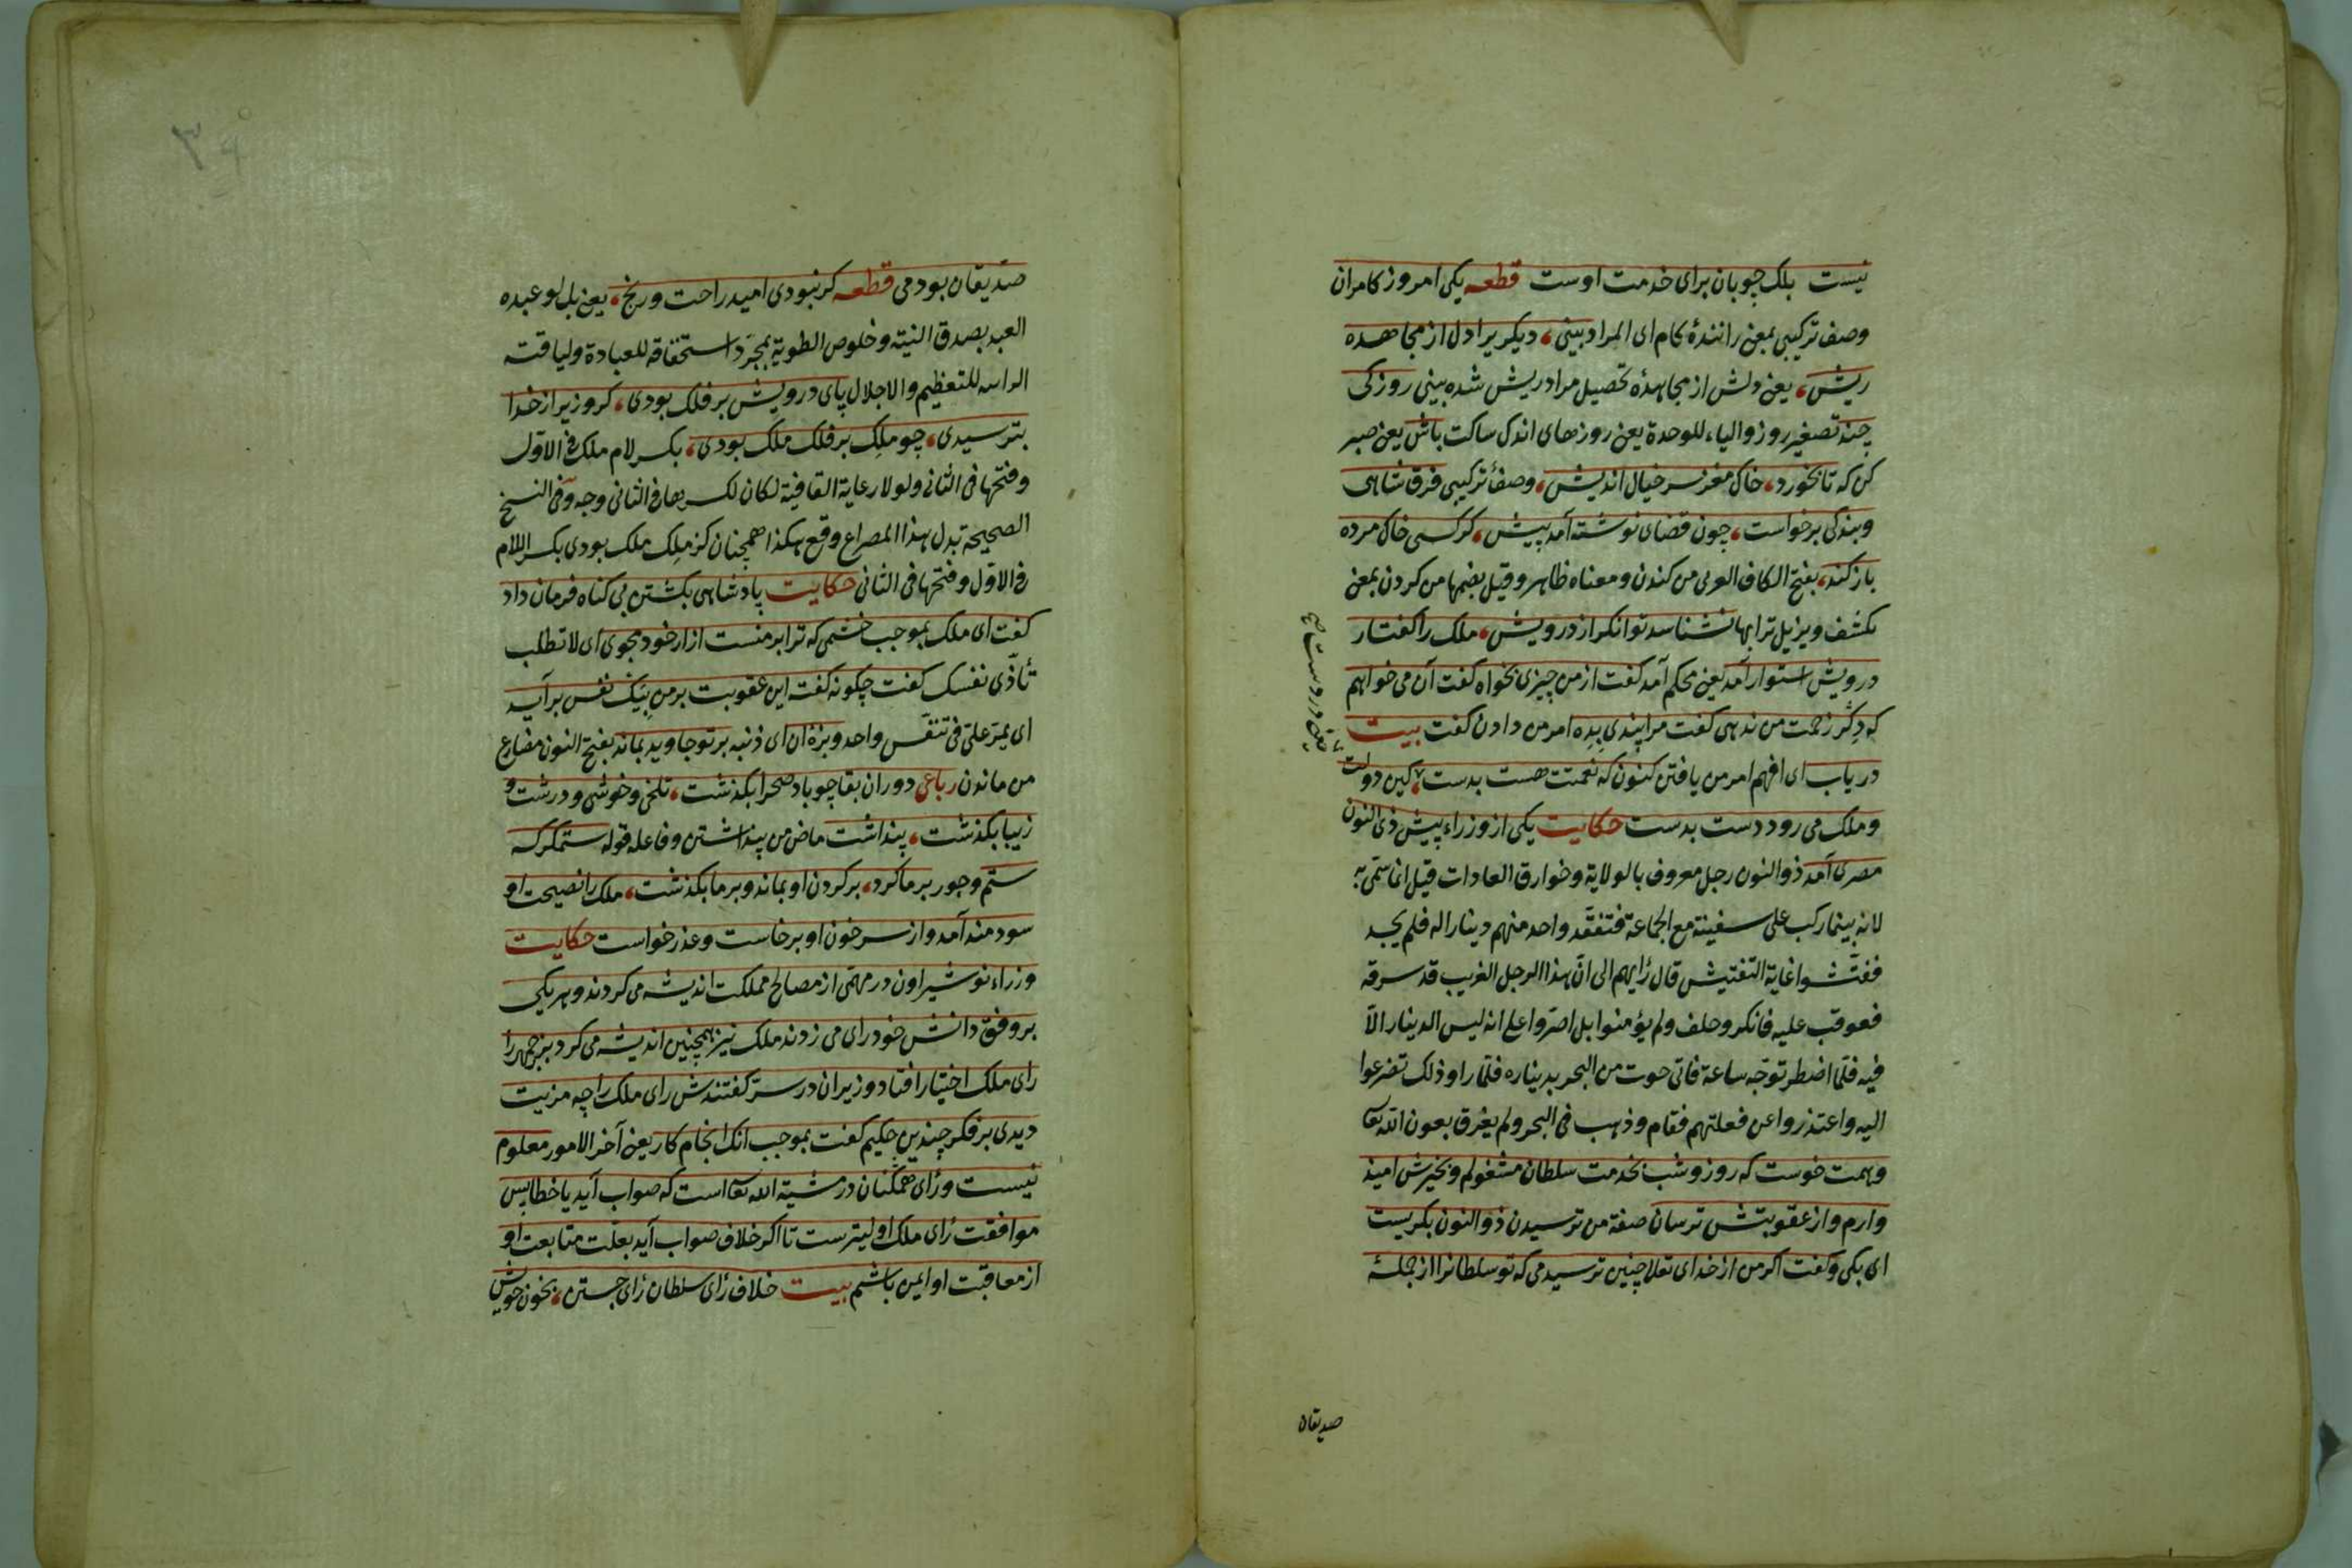 نیست بلک چوبان برای خدمت اوست قطعه یکی امروز کامران
وصف ترکیبی بمعنی رانندۀ کام ای المراد بینی، دیکریرا دل از مجاهده
ریش، یعنی دلش از مجاهدۀ تحصیل مراد ریش شده بینی روزکی
چند تصغیر روز والیاء للوحدة یعنی روزهای اندک ساکت باش یعنی صبر
کن که تا نخورد، خاک مغز سر خیال اندیش، وصف ترکیبی فرق شاهی
وبندکی برخواست، چون قضای نوشته آمد پیش، کر کسی خاک مرده
باز کند، بفتح الکاف العربی من کندن ومعناه ظاهر وقیل بضمها من کردن بمعنی
یکشف ویزیل ترابها نشناسد توانکر از درویش، ملک را کفتار
درویش استوار آمد یعنی محکم آمد کفت از من چیزی بخواه کفت آن می خواهم
که دکر زحمت من ندهی کفت مرا پندی بده امر من دادن کفت بیت
دریاب ای افهم امر من یافتن کنون که نعمتت هست بدست، کین دولت
وملک می رود دست بدست حکایت یکی از وزراء پیش ذی النون
مصری آمد ذو النون رجل معروف بالولایة وخوارق العادات قیل انما سمّی به
لانه بینما رکب علی سفینة مع الجماعة فتفقّد واحد منهم دینارا له فلم یجد
ففتّشوا غایة التفتیش قال رأیهم الی انّ هذا الرجل الغریب قد سرقه
فعوقب علیه فانکر وحلف ولم یؤمنوا بل اصرّوا علی انه لیس الدینار الّا
فیه فلمّا اضطر توجّه ساعة فاتی حوت من البحر بدیناره فلمّا راو ذلک تضرعوا
الیه واعتذروا عن فعلتهم فقام وذهب فی البحر ولم یغرق بعون الله تعا
وهمت خوست که روز وشب بخدمت سلطان مشغولم وبخیرش امید
وارم واز عقوبتش ترسان صفة من ترسیدن ذو النون بکریست
ای بکی وکفت اکر من از خدای تعلا چنین ترسیدمی که تو سلطانرا از جملۀ
صدیقان
صدیقان بودمی قطعه کر نبودی امید راحت ورنج، یعنی بل لو عبده
العبد بصدق النیته وخلوص الطویة بمجرّد استحقاقه للعبادة ولیاقته
للتعظیم والاجلال پای درویش بر فلک بودی، کر وزیر از خدا
بترسیدی، چو ملک بر فلک ملک بودی، بکسر لام ملک فی الاوّل
وفتحها فی الثانی ولولا رعایة القافیة لکان لکسرها فی الثانی وجه وفی النسخ
الصحیحة تبدل هذا المصراع وقع هکذا همچنان کز ملک ملک بودی بکسر اللام
فی الاوّل وفتحها فی الثانی حکایت پادشاهی بکشتن بی کناه فرمان داد
کفت ای ملک بموجب خشمی که ترا بر منست ازار خود مجوی ای لا تطلب
تأذّی نفسک کفت چکونه کفت این عقوبت بر من بیک نفس برآید
ای یمرّ علیّ فی تنفّس واحد وبزۀ آن ای ذنبه بر تو جاوید بماند بفتح النون مضارع
من ماندن رباعی دوران بقا چو باد صحرا بکذشت، تلخی وخوشی ودرشت و
زیبا بکذشت، پنداشت ماض من پنداشتن وفاعله قوله ستمکر که
ستم وجور بر ما کرد، بر کردن او بماند وبر ما بکذشت، ملک را نصیحت او
سودمند آمد واز سر خون او برخاست وعذر خواست حکایت
وزراء نوشیراون در مهمّی از مصالح مملکت اندیشه می کردند وهر یکی
بر وفق دانش خود رای می زدند ملک نیز همچنین اندیشه می کرد بزرجمهر را
رای ملک اختیار افتاد وزیران در سرّ کفتندش رای ملک را چه مزیت
دیدی بر فکر چندین حکیم کفت بموجب آنک انجام کار یعنی آخر الامور معلوم
نیست ورای همکنان در مشیّة الله تعا است که صواب آید یا خطا پس
موافقت رای ملک اولیترست تا اکر خلاف صواب آید بعلّت متابعت او
از معاقبت او ایمن باشم بیت خلاف رای سلطان رای جستن، بخون خویش